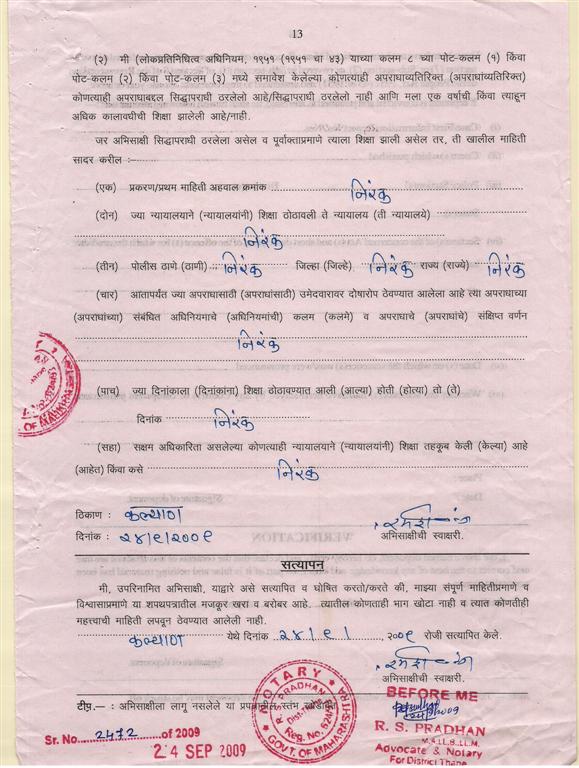 13
(२) मी (लोकप्रतिनिधित्व अधिनियम, १९५१ (१९५१ चा ४३) याच्या कलम ८ च्या पोट-कलम (१) किंवा
पोट-कलम (२) किंवा पोट-कलम (३) मध्ये समावेश केलेल्या कोणत्याही अपराधाव्यतिरिक्त (अपराधांव्यतिरिक्त)
कोणत्याही अपराधाबद्दल सिद्धापराधी ठरलेलो आहे/सिद्धापराधी ठरलेलो नाही आणि मला एक वर्षाची किंवा त्याहून
अधिक कालावधीची शिक्षा झालेली आहे/नाही.
जर अभिसाक्षी सिद्धापराधी ठरलेला असेल व पूर्वोक्ताप्रमाणे त्याला शिक्षा झाली असेल तर, ती खालील माहिती
सादर करील :—
(एक) प्रकरण/प्रथम माहिती अहवाल क्रमांक निरंक
(दोन) ज्या न्यायालयाने (न्यायालयांनी) शिक्षा ठोठावली ते न्यायालय (ती न्यायालये)
निरंक
(तीन) पोलीस ठाणे (ठाणी) निरंक जिल्हा (जिल्हे) निरंक राज्य (राज्ये) निरंक
(चार) आतापर्यंत ज्या अपराधासाठी (अपराधांसाठी) उमेदवारावर दोषारोप ठेवण्यात आलेला आहे त्या अपराधाच्या
(अपराधांच्या) संबंधित अधिनियमाचे (अधिनियमांची) कलम (कलमे) व अपराधाचे (अपराधांचे) संक्षिप्त वर्णन
निरंक
(पाच) ज्या दिनांकाला (दिनांकांना) शिक्षा ठोठावण्यात आली (आल्या) होती (होत्या) तो (ते)
दिनांक निरंक
(सहा) सक्षम अधिकारिता असलेल्या कोणत्याही न्यायालयाने (न्यायालयांनी) शिक्षा तहकूब केली (केल्या) आहे
(आहेत) किंवा कसे निरंक
ठिकाण : कल्याण
दिनांक : २४/९/२००९ अभिसाक्षीची स्वाक्षरी.
सत्यापन
मी, उपरिनामित अभिसाक्षी, याद्वारे असे सत्यापित व घोषित करतो/करते की, माझ्या संपूर्ण माहितीप्रमाणे व
विश्वासाप्रमाणे या शपथपत्रातील मजकूर खरा व बरोबर आहे. त्यातील कोणताही भाग खोटा नाही व त्यात कोणतीही
महत्त्वाची माहिती लपवून ठेवण्यात आलेली नाही.
कल्याण येथे दिनांक २४/९/ , २००९ रोजी सत्यापित केले.
अभिसाक्षीची स्वाक्षरी.
टीप.— : अभिसाक्षीला लागू नसलेले या प्रपत्रातील स्तंभ
BEFORE ME
24/9/2009
R. S. PRADHAN
M.A.LL.B.LL.M.
Advocate & Notary
For District Thane
NOTARY
R. S. PRADHAN
Reg. No. 5245
GOVT. OF MAHARASHTRA
Sr. No. 2472 of 2009
24 SEP 2009